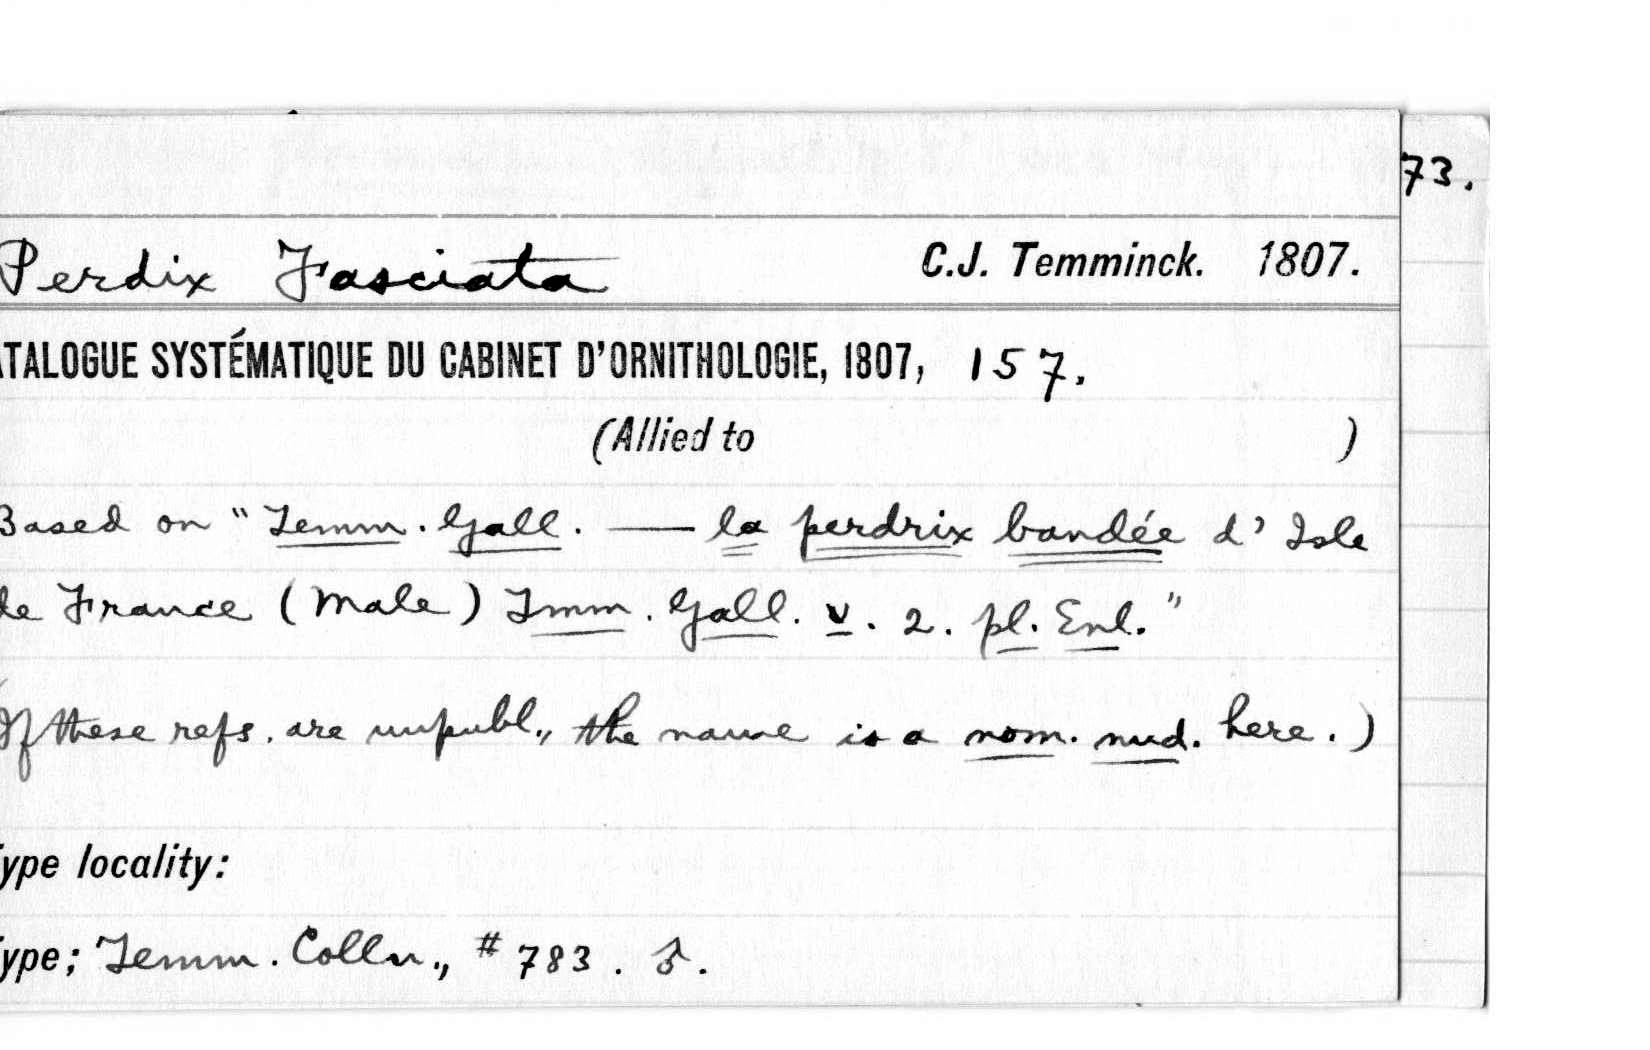 73.
Perdix Fasciata C.J. Temminck. 1807.
ATALOGUE SYSTÉMATIQUE DU CABINET D'ORNITHOLOGIE, 1807, 157.
(Allied to )
Based on "Temm. Gall. — la perdrix bandée d' Isle
de France (Male) Tmm. Gall. v. 2. pl. Enl."
(If these refs. are unpubl., the name is a nom. nud. here.)
ype locality:
ype; Temm. Colln., # 783. ♂.